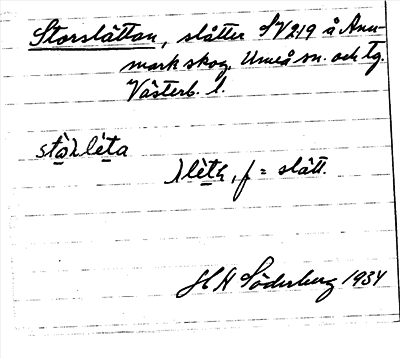 Storslåttan, slåtter SV 219 å Anu-
mark skog. Umeå sn. och tg.
Västerb. l.
stòɹlèta
ɹlèth, f = slått.
H H Söderberg 1934